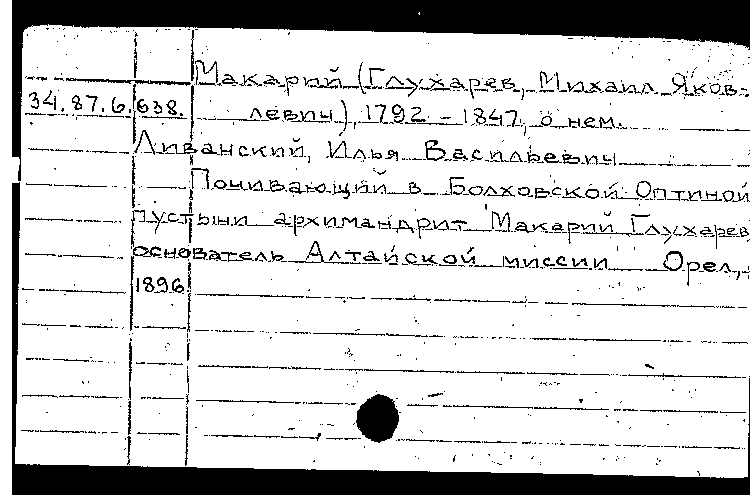 Макарий (Глухарев, Михаил Яков-
34.87.6.638. левич), 1792 - 1847, о нем.
Ливанский, Илья Васильевич
Почивающий в Болховской Оптиной
пустыни архимандрит Макарий Глухарев
основатель Алтайской миссии Орел,
1896